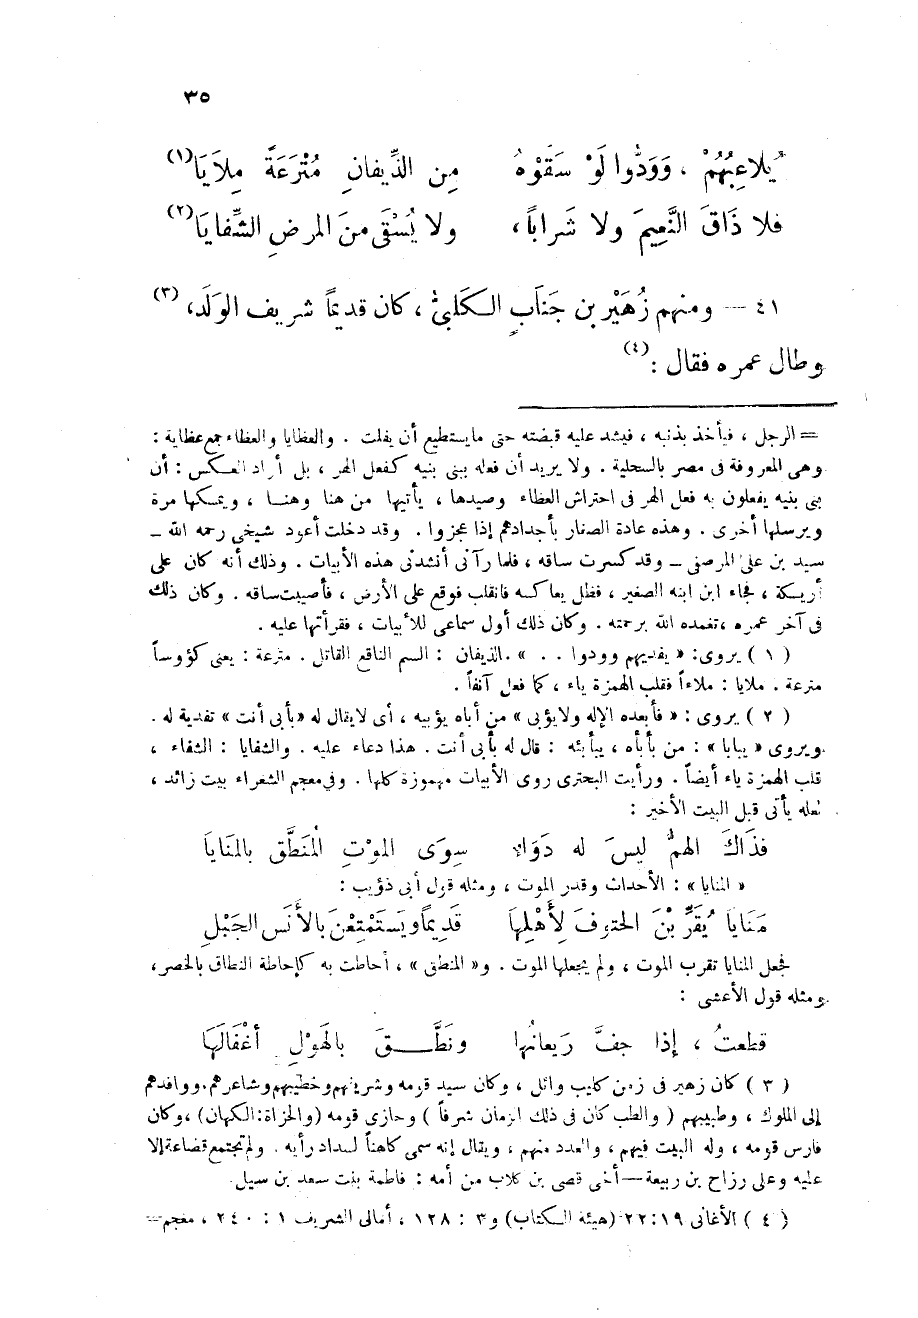 ٣٥
يُلاعِبُهُمْ ، وَوَدُّوا لَوْ سَقَوْهُ مِن الذِّيفانِ مُتْرَعَةً مِلَايَا(١)
فلا ذَاقَ النَّعِيمَ ولا شَراباً ، ولا يُسْقَى منَ المرضِ الشِّفايَا(٢)
٤١ — ومنهم زُهَيْر بن جَنَابٍ الكَلبىُّ ، كان قديمًا شريف الوَلَد، (٣)
وطال عمره فقال : (٤)
= الرجل ، فيأخذ بذنبه ، فيشد عليه قبضته حتى ما يستطيع أن يفلت . والعظايا والعظاء جمع عظاية :
وهى المعروفة فى مصر بالسحلية . ولا يريد أن فعله ببنى بنيه كفعل الهر ، بل أراد العكس : أن
بنى بنيه يفعلون به فعل الهر فى احتراش العظاء وصيدها ، يأتيها من هنا وهنا ، ويمسكها مرة
ويرسلها أخرى . وهذه عادة الصغار بأجدادهم إذا عجزوا . وقد دخلت أعود شيخى رحمه الله –
سيد بن على المرصفى – وقد كسرت ساقه ، فلما رآنى أنشدنى هذه الأبيات . وذلك أنه كان على
أريكة ، فجاء ابن ابنه الصغير ، فظل يعاكسه فانقلب فوقع على الأرض ، فأصيبت ساقه . وكان ذلك
فى آخر عمره ، تغمده الله برحمته . وكان ذلك أول سماعى للأبيات ، فقرأتها عليه .
( ١ ) يروى: « يفديهم وودوا . . » . الذيفان : السم الناقع القاتل . مترعة : يعنى كؤوساً
مترعة . ملايا : ملاءاً فقلب الهمزة ياء ، كما فعل آنفاً .
( ٢ ) يروى : « فأبعده الإله ولا يؤبى » من أباه يؤبيه ، أى لا يقال له «بأبى أنت» تفدية له .
ويروى « يبابا » : من بأبأه ، يبأبئه : قال له بأبى أنت . هذا دعاء عليه . والشفايا : الشفاء ،
قلب الهمزة ياء أيضاً . ورأيت البحترى روى الأبيات مهموزة كلها . وفى معجم الشعراء بيت زائد ،
لعله يأتى قبل البيت الأخير :
فذَاكَ الهمُّ ليسَ له دَوَاءٌ سِوَى الموْتِ المُنَطَّقِ بالمنَايَا
« المنايا » : الأحداث وقدر الموت ، ومثله قول أبى ذؤيب :
مَنَايا يُقَرِّبْنَ الحتوفَ لِأَهْلِهَا قَدِيمًا ويَستَمْتِعْنَ بالأَنَسِ الجَبْلِ
فجعل المنايا تقرب الموت ، ولم يجعلها الموت . و« المنطق » ، أحاطت به كإحاطة النطاق بالخصر،
ومثله قول الأعشى :
قطعتُ ، إذا خبَّ رَيعانُها ونَطَّقَ بالهَوْلِ أغْفَالَهَا
( ٣ ) كان زهير فى زمن كليب وائل ، وكان سيد قومه وشريفهم وخطيبهم وشاعرهم. ووافدهم
إلى الملوك ، وطبيبهم ( والطب كان فى ذلك الزمان شرفاً ) وحازى قومه (والحزاة: الكهان)، وكان
فارس قومه ، وله البيت فيهم ، والعدد منهم ، ويقال إنه سمى كاهناً لسداد رأيه . ولم تجتمع قضاعة إلا
عليه وعلى رزاح بن ربيعة — أخى قصى بن كلاب من أمه : فاطمة بنت سعد بن سيل .
( ٤ ) الأغانى ١٩: ٢٢ (هيئة الكتاب) و٣ : ١٢٨ ، أمالى الشريف ١ : ٢٤٠ ، معجم=